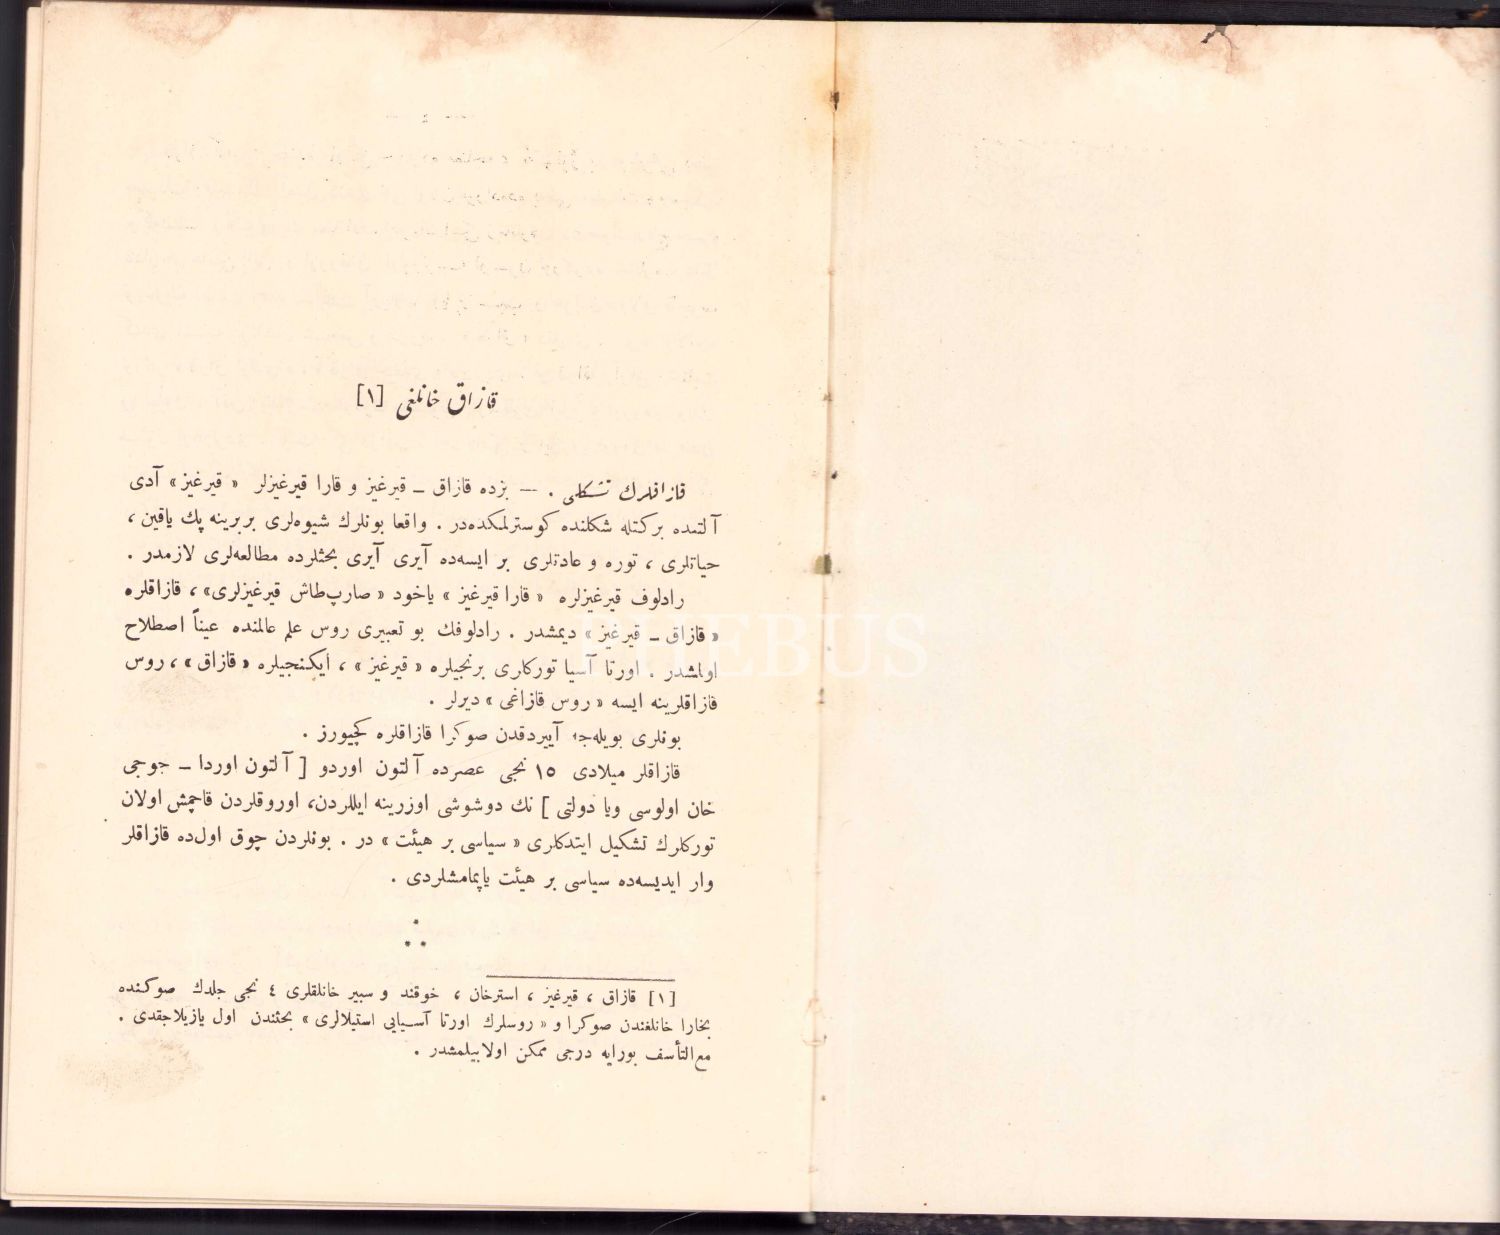 قازاق خانلغی [١]
قازاقلرك تشكلی . — بزده قازاق ـ قیرغیز و قارا قیرغیزلر « قیرغیز» آدی
آلتنده برکتله شکلنده کوسترلمکده‌در . واقعا بونلرك شیوه‌لری بربرینه پك یاقین ،
حیاتلری ، توره و عادتلری بر ایسه‌ده آیری آیری بحثلرده مطالعه‌لری لازمدر .
رادلوف قیرغیزلره « قارا قیرغیز » یاخود « صارپ‌طاش قیرغیزلری» ، قازاقلره
« قازاق ـ قیرغیز » دیمشدر . رادلوفك بو تعبیری روس علم عالمنده عیناً اصطلاح
اولمشدر . اورتا آسیا تورکلری برنجیلره « قیرغیز » ، ایکنجیلره « قازاق » ، روس
قازاقلرینه ایسه « روس قازاغی » دیرلر .
بونلری بویله‌جه آییردقدن صوکرا قازاقلره کچیورز .
قازاقلر میلادی ١٥ نجی عصرده آلتون اوردو [ آلتون اوردا ـ جوجی
خان اولوسی ویا دولتی ] نك دوشوشی اوزرینه ایللردن، اوروقلردن قاچمش اولان
تورکلرك تشکیل ایتدکلری « سیاسی بر هیئت » در . بونلردن چوق اول‌ده قازاقلر
وار ایدیسه‌ده سیاسی بر هیئت یاپمامشلردی .
[١] قازاق ، قیرغیز ، استرخان ، خوقند و سبیر خانلقلری ٤ نجی جلدك صوکنده
بخارا خانلغندن صوکرا و « روسلرك اورتا آسیایی استیلالری » بحثندن اول یازیلاجقدی .
مع‌التأسف بورایه درجی ممکن اولابیلمشدر .
PHEBUS